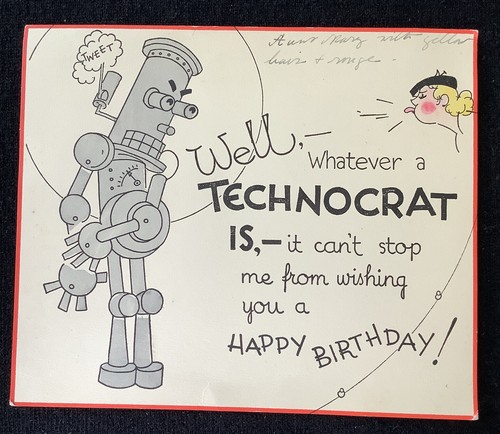 Aunt Mary with yellow
hair & rouge.
TWEET
Well,—
Whatever a
TECHNOCRAT
IS,— it can't stop
me from wishing
you a
HAPPY BIRTHDAY!